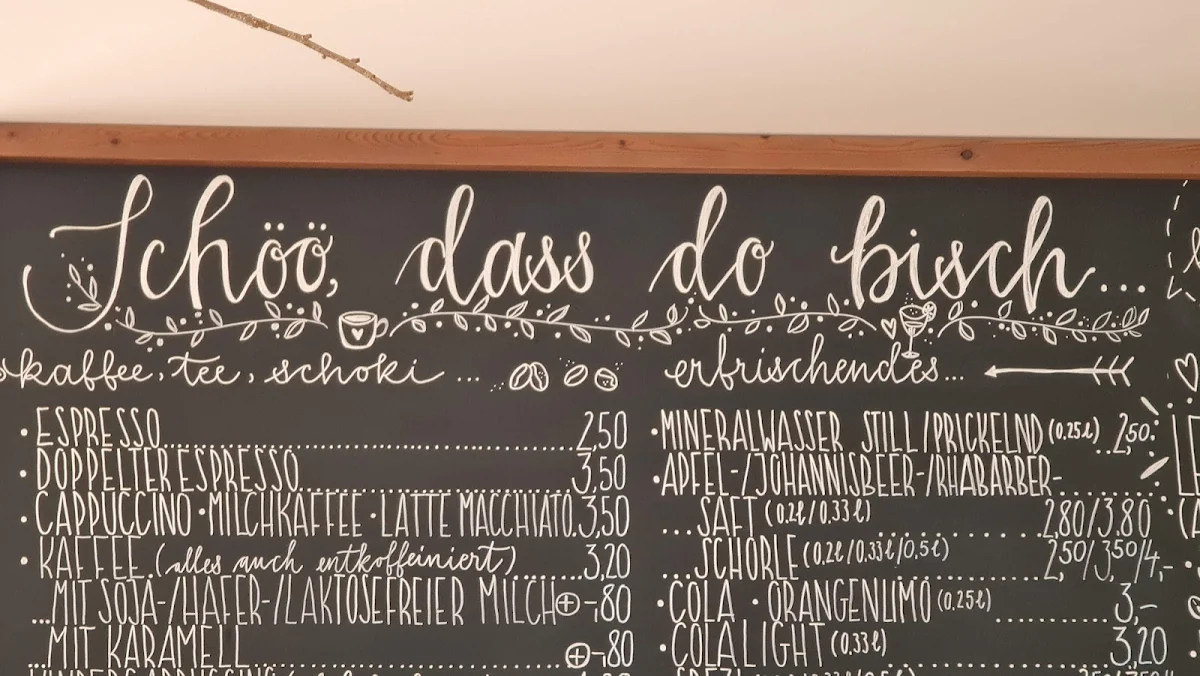 Schöö, dass do bisch...
kaffee, tee, schoki ...
• ESPRESSO 2,50
• DOPPELTER ESPRESSO 3,50
• CAPPUCCINO • MILCHKAFFEE • LATTE MACCHIATO 3,50
• KAFFEE (alles auch entkoffeiniert) 3,20
...MIT SOJA-/HAFER-/LAKTOSEFREIER MILCH ⊕ -,80
...MIT KARAMELL ⊕ -,80
erfrischendes...
• MINERALWASSER STILL/PRICKELND (0,25l) 2,50
• APFEL-/JOHANNISBEER-/RHABARBER-
...SAFT (0,2l/0,33l) 2,80/3,80
...SCHORLE (0,2l/0,33l/0,5l) 2,50/3,50/4,-
• COLA • ORANGENLIMO (0,25l) 3,-
• COLA LIGHT (0,33l) 3,20